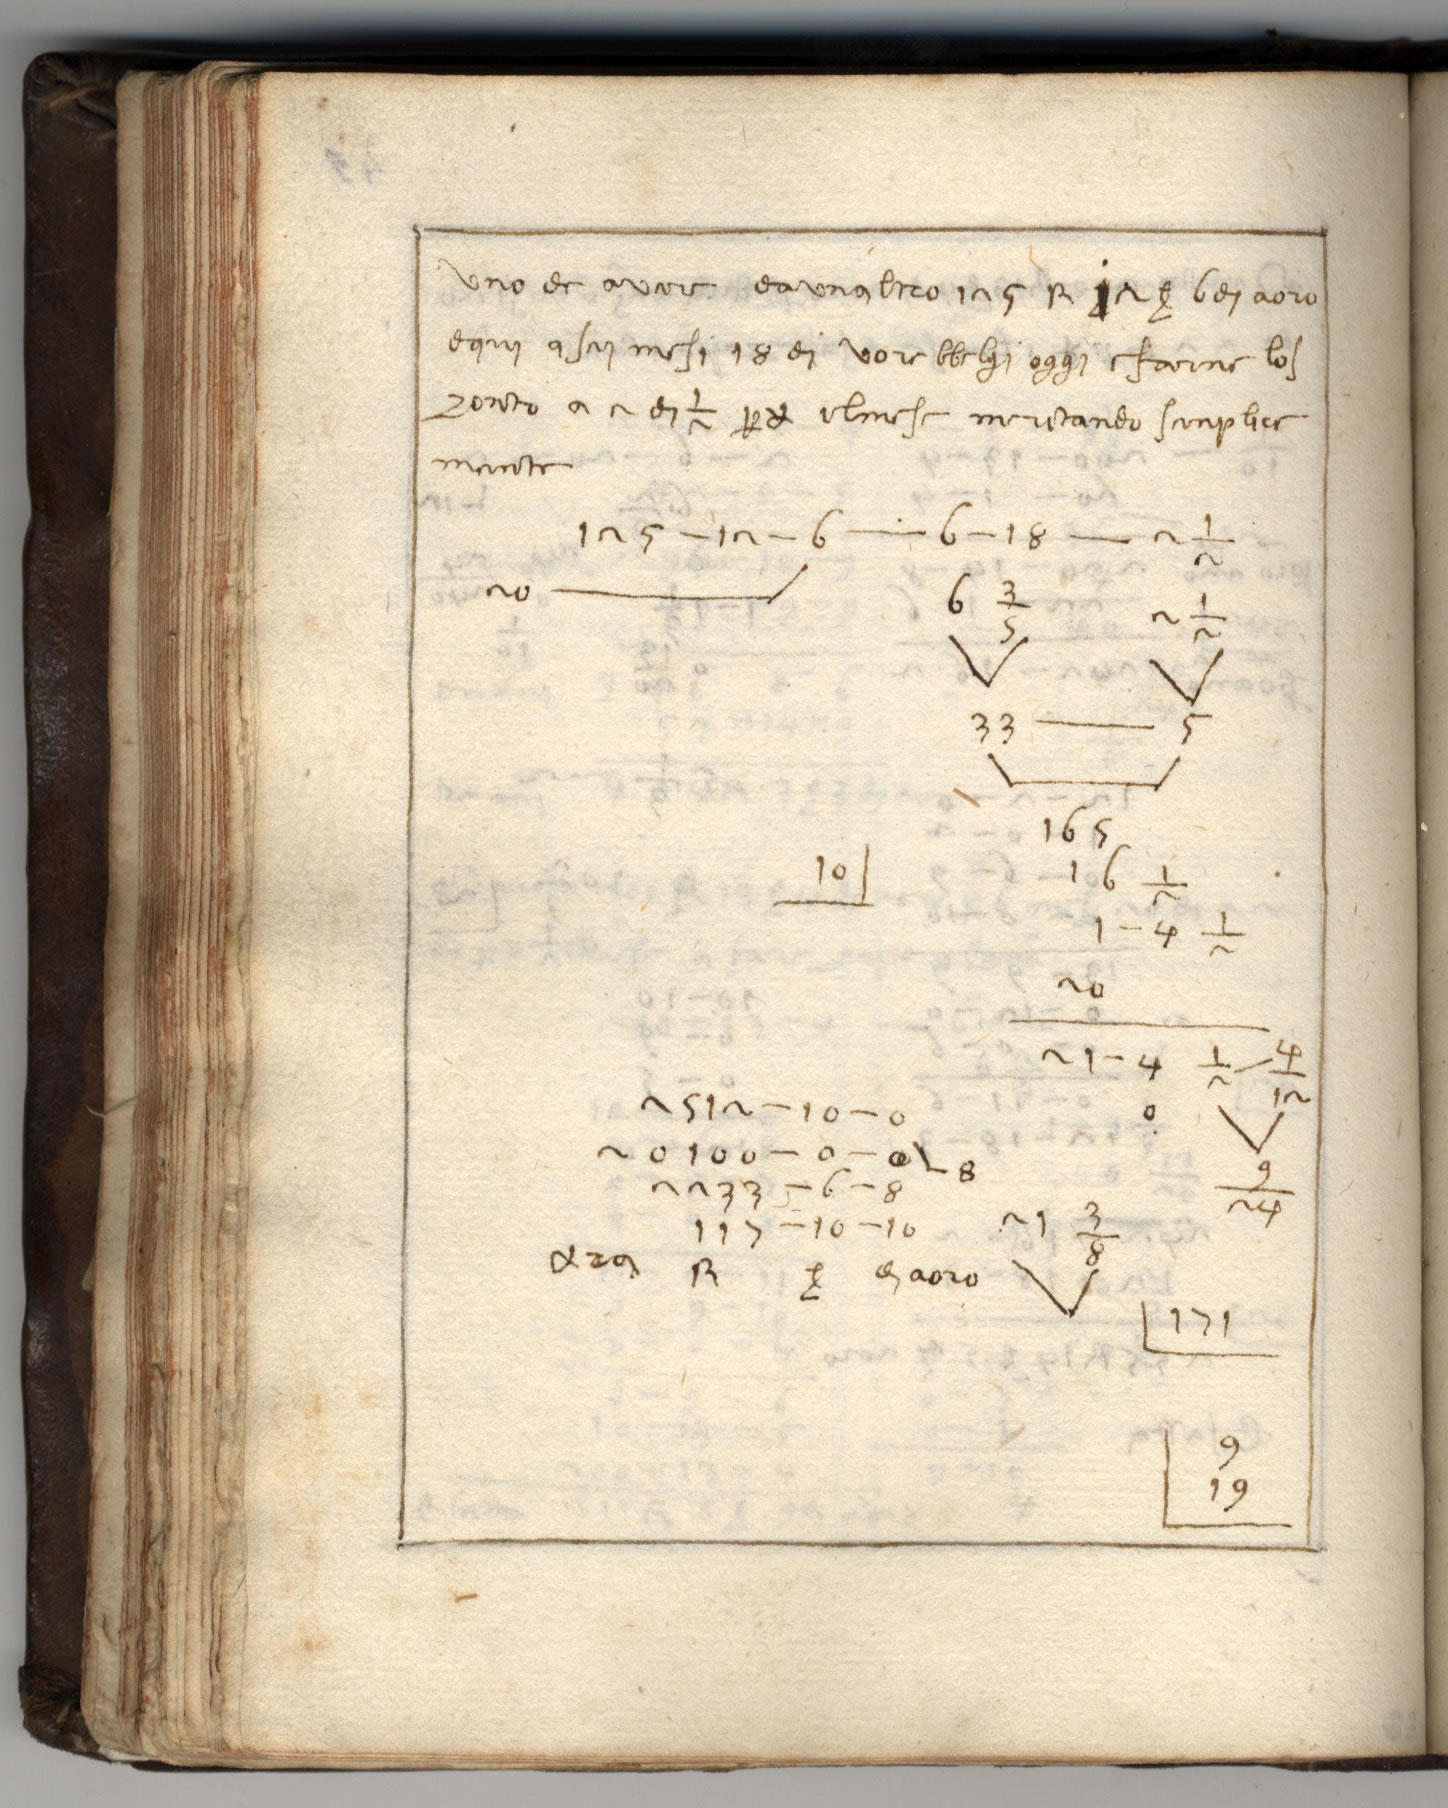 uno de avere da unaltro 125 ℞ 12 ꝭ 6 dj aoro
de qui a sej mesi 18 dj vorebbelgi oggi e farne los
zonto a 2 dj 1/2 per ₤ elmese meritando senplice
mente
125 — 12 — 6 — 6 — 18 — 2 1/2
20
6 3/5 2 1/2
33 — 5
165
10 16 1/2
1 — 4 1/2
20
21 — 4 1/2 4/12
2512 — 10 — 0 0
20100 — 0 — 0 8 9/24
2233 — 6 — 8
117 — 10 — 10 21 3/8
℞ ꝭ dj aoro
171
9
19